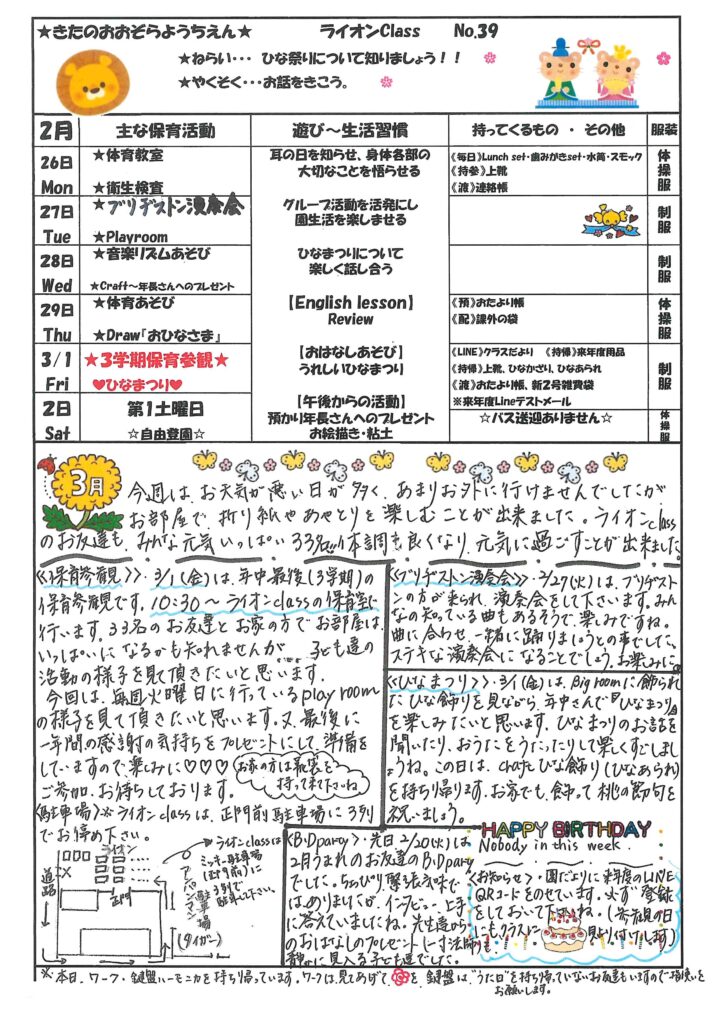 ★きたのおおぞらようちえん★ ライオンClass No.39
★ねらい・・・ ひな祭りについて知りましょう！！
★やくそく・・・お話をきこう。
2月 主な保育活動 遊び～生活習慣 持ってくるもの ・ その他 服装
26日 Mon
★体育教室
★衛生検査
耳の日を知らせ、身体各部の
大切なことを悟らせる
《毎日》Lunch set・歯みがきset・水筒・スモック
《持参》上靴
《渡》連絡帳
体操服
27日 Tue
★ブリヂストン演奏会
★Playroom
グループ活動を活発にし
園生活を楽しませる
制服
28日 Wed
★音楽リズムあそび
★Craft～年長さんへのプレゼント
ひなまつりについて
楽しく話し合う
制服
29日 Thu
★体育あそび
★Draw『おひなさま』
【English lesson】
Review
《預》おたより帳
《配》課外の袋
体操服
3/1 Fri
★3学期保育参観★
♥ひなまつり♥
【おはなしあそび】
うれしいひなまつり
《LINE》クラスだより 《持帰》来年度用品
《持帰》上靴、ひなかざり、ひなあられ
《渡》おたより帳、新2号雑費袋
※来年度Lineテストメール
制服
2日 Sat
第1土曜日
☆自由登園☆
【午後からの活動】
預かり年長さんへのプレゼント
お絵描き・粘土
☆バス送迎ありません☆
体操服
3月
今週は、お天気が悪い日が多く、あまりお外に行けませんでしたが
お部屋で、折り紙やあやとりを楽しむことが出来ました。ライオンclass
のお友達も、みんな元気いっぱい 33名が体調も良くなり、元気に過ごすことが出来ました。
《保育参観》・3/1(金)は、年中最後(3学期)の
保育参観です。10:30～ライオンclassの保育室に
行います。33名のお友達とお家の方でお部屋は、
いっぱいになるかも知れませんが、子ども達の
活動の様子を見て頂きたいと思います。
今回は、毎週火曜日に行っているplay room
の様子を見て頂きたいと思います。又、最後に
一年間の感謝の気持ちをプレゼントにして準備を
していますので楽しみに♡♡♡
お家の方は
持って来て下さいね
ご参加、お待ちしております。
《駐車場》※ライオンclassは、正門前駐車場に3列
でお停め下さい。
ライオン
道路
正門
ライオンclassは
ミッキー駐車場
(正門前)に
3列で
アンパンマン駐車場
《ブリヂストン演奏会》・2/27(火)は、ブリヂスト
ンの方が来られ、演奏会をして下さいます。みん
なの知っている曲もあるそうで、楽しみですね。
曲に合わせ、一緒に踊りましょうとの事でした。
ステキな演奏会になることでしょう。お楽しみに
《ひなまつり》・3/1(金)は、Big roomに飾られ
たひな飾りを見ながら、年中さんで『ひなまつり』
を楽しみたいと思います。ひなまつりのお話を
聞いたり、おうたをうたったりして楽しくすごしま
しょうね。この日は、craftひな飾り(ひなあられ)
を持ち帰ります。お家でも、飾って桃の節句を
祝いましょう。
《B・Dparty》・先日、2/20(火)は
2月うまれのお友達のB・Dparty
でした。ちょっぴり緊張気味で
はありましたが、インタビュー上手
に答えていましたね。先生達から
のおはなしのプレゼント『一寸法師』も
静かに見入る子ども達でした。
HAPPY BIRTHDAY
Nobody in this week.
《お知らせ》・園だよりに来年度のLINE
QRコードをのせています。必ず登録
をしておいて下さいね。(参観の日
にも
※本日、ワーク・鍵盤ハーモニカを持ち帰っています。ワークは、見てあげて を 鍵盤は“うた口”を持ち帰っていないお友達もいますので
お願いします。